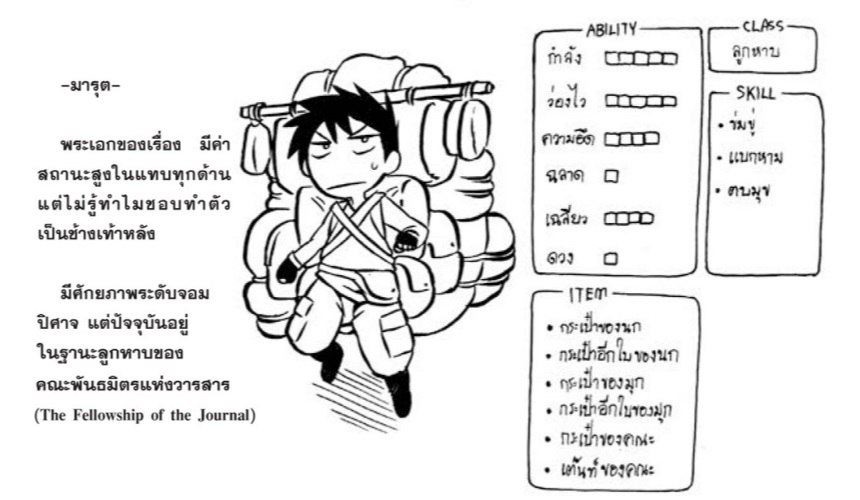 -มารุต-
พระเอกของเรื่อง มีค่า
สถานะสูงในแทบทุกด้าน
แต่ไม่รู้ทำไมชอบทำตัว
เป็นช้างเท้าหลัง
มีศักยภาพระดับจอม
ปิศาจ แต่ปัจจุบันอยู่
ในฐานะลูกหาบของ
คณะพันธมิตรแห่งวารสาร
(The Fellowship of the Journal)
ABILITY
กำลัง
ว่องไว
ความอึด
ฉลาด
เฉลียว
ดวง
CLASS
ลูกหาบ
SKILL
• ข่มขู่
• แบกหาม
• ตบมุข
ITEM
• กระเป๋าของนก
• กระเป๋าอีกใบของนก
• กระเป๋าของมุก
• กระเป๋าอีกใบของมุก
• กระเป๋าของคณะ
• เต๊นท์ของคณะ